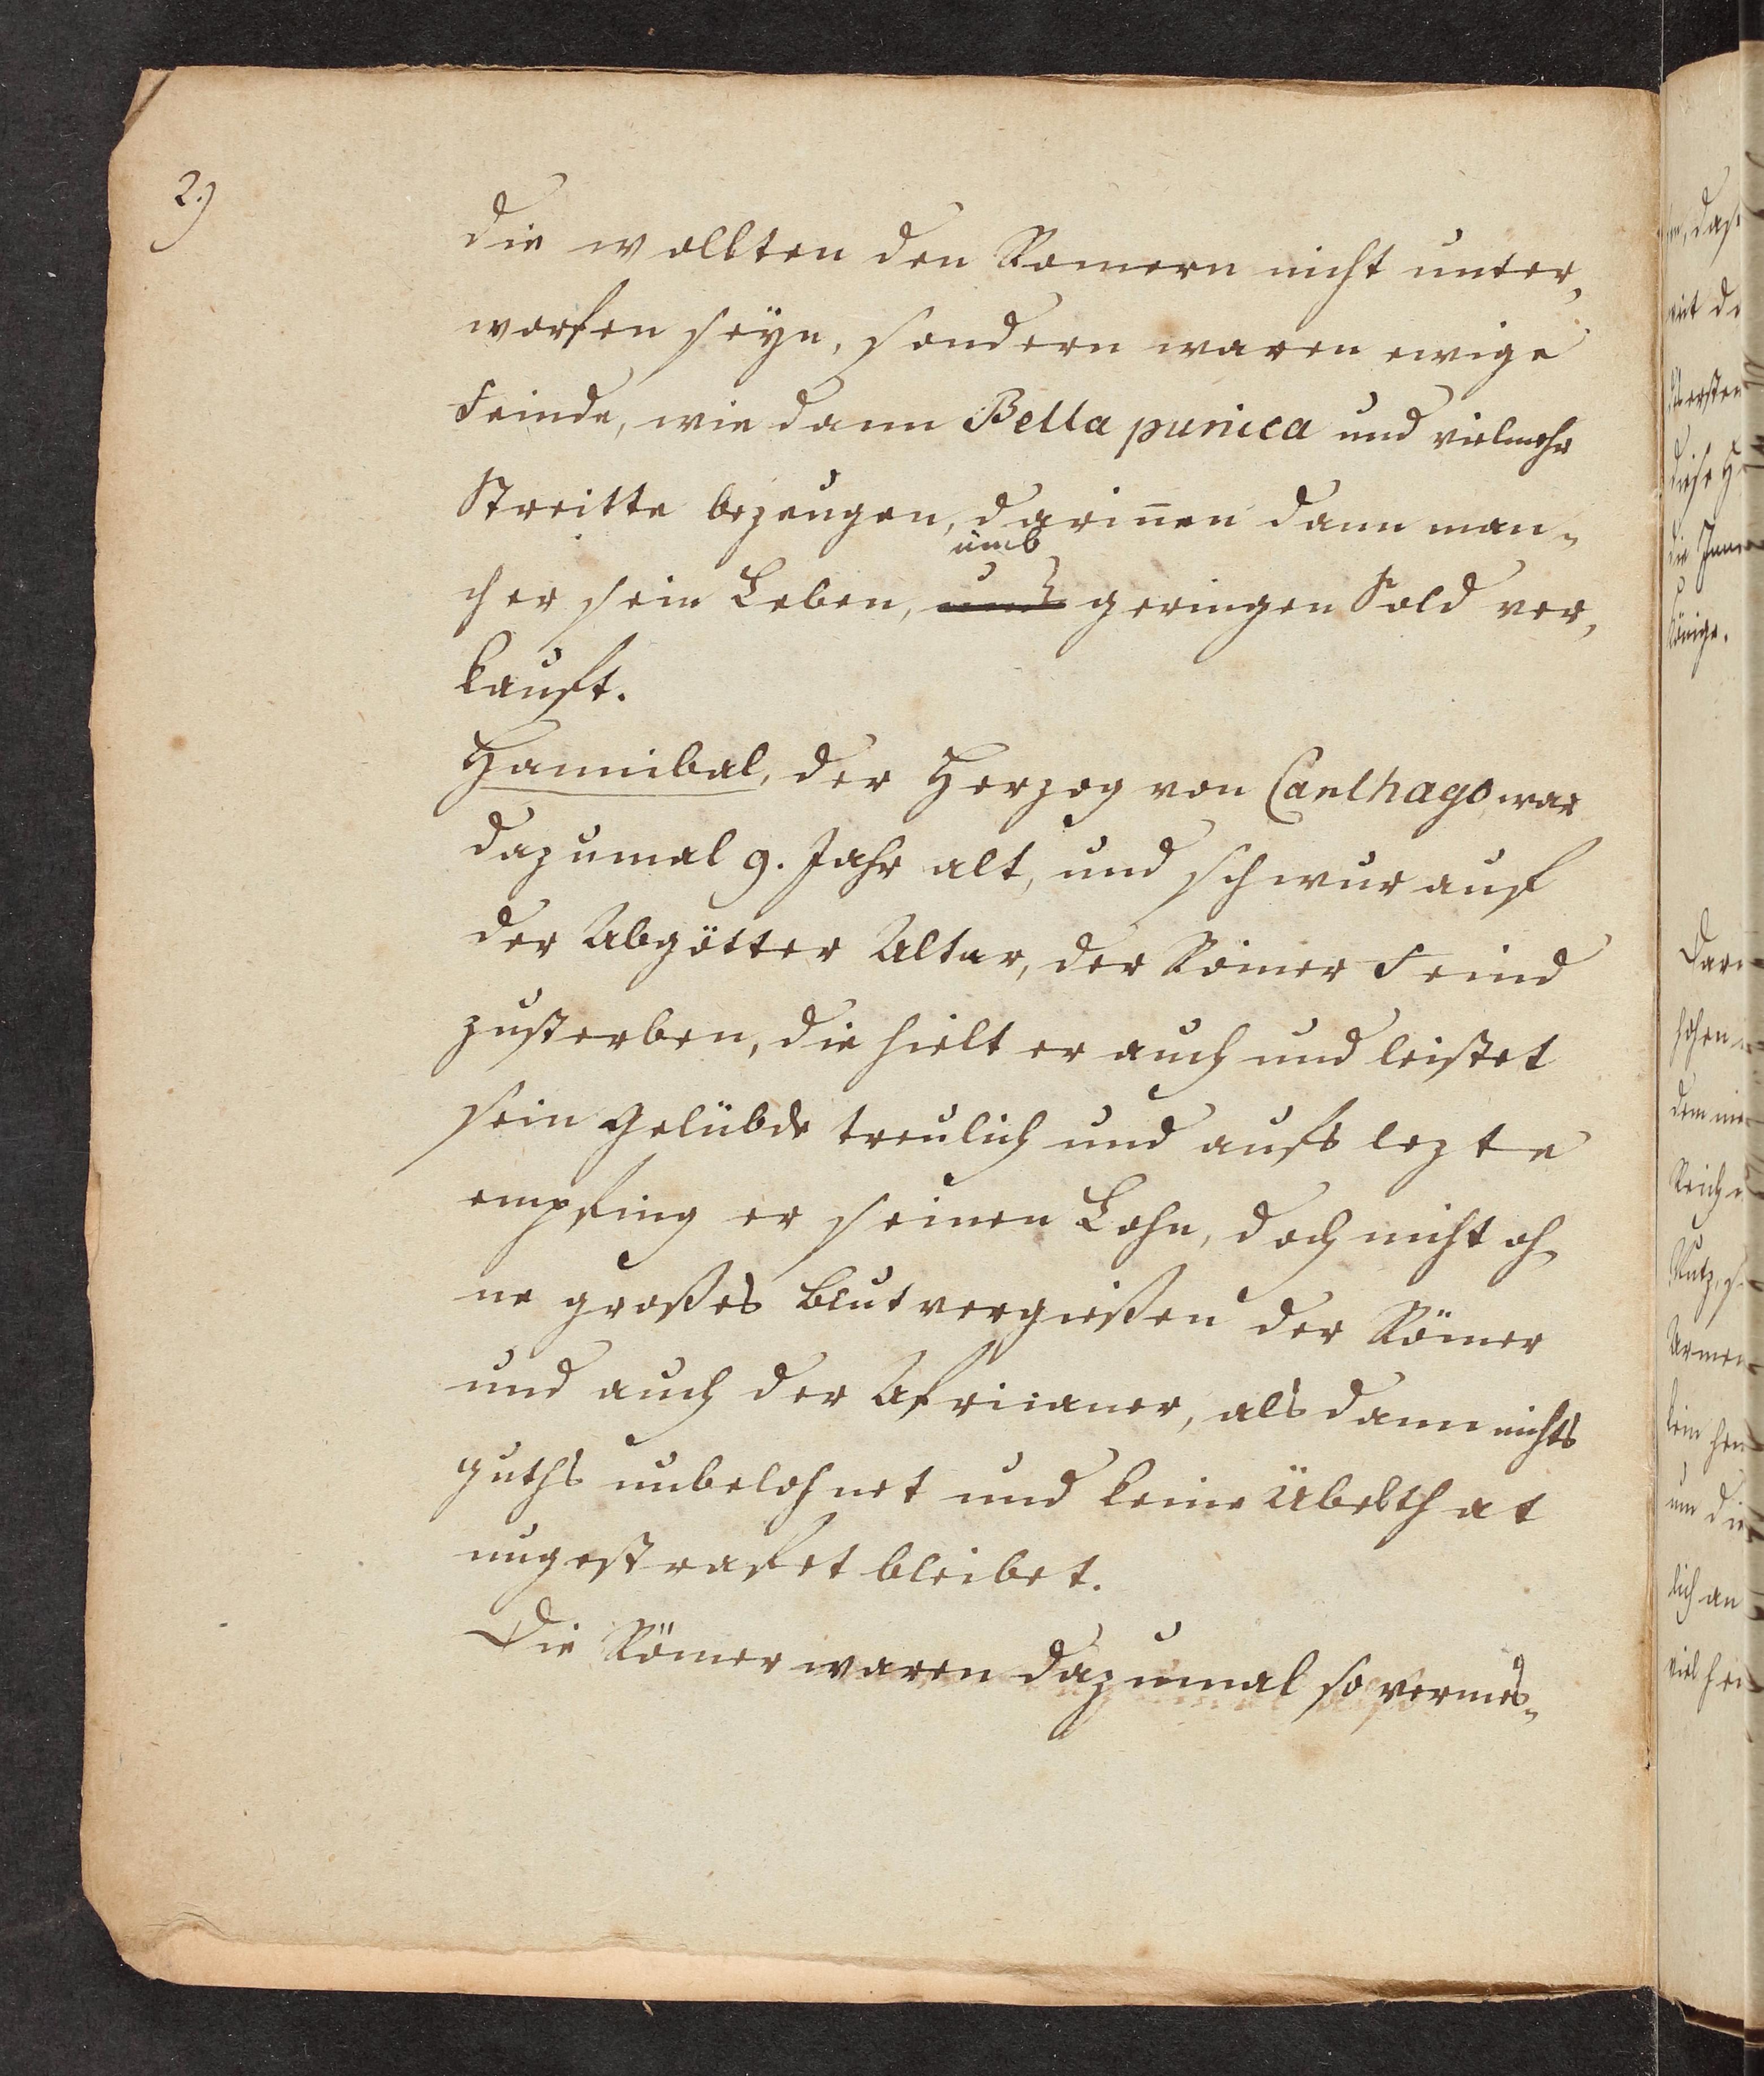 2.)
die wollten den Romern nicht unter,
worfen seÿn, sondern waren ewige
Feinde, wie dann Bella punica und vielmehr
Streitte bezeugen, darin̄en dann man-
umb
cher sein Leben, und geringen Sold ver,
kauft.
Hannibal, der Herzog von Carthago, war
dazumal 9. Jahr alt, und schwur auf
der Abgötter Altar, der Römer Feind
zusterben, die hielt er auch und leistet
sein Gelübde treulich und aufs lezte
empfing er seinen Lohn, doch nicht oh,
ne großes Blutvergießen der Römer
und auch der Africaner, als dann nichts
guths unbelohnet und keine Übelthat
ungestrafet bleibet.
Die Römer waren dazumal so vermes-